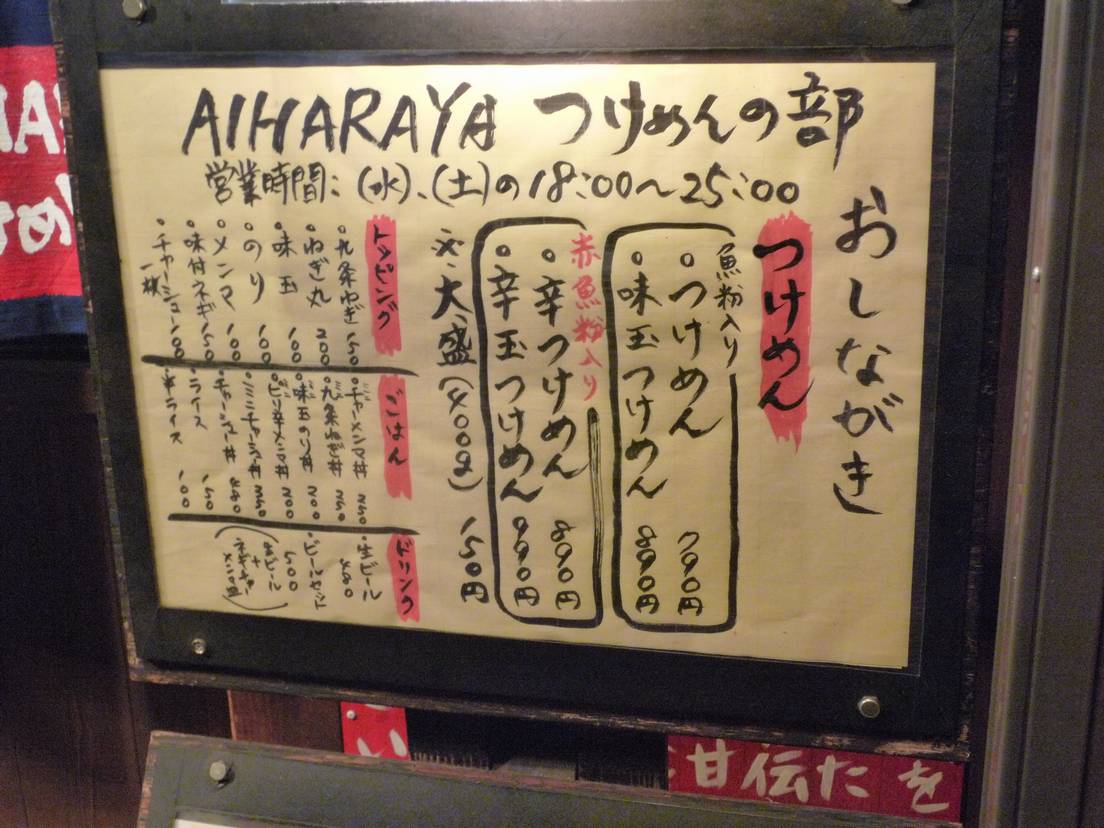 AIHARAYA つけめんの部
営業時間:(水)、(土)の18:00~25:00
おしながき
つけめん
魚粉入り
。つけめん 790円
。味玉つけめん 890円
赤魚粉入り
。辛つけめん 890円
。辛玉つけめん 990円
※大盛(400g) 150円
トッピング
・九条ねぎ 150
・ねぎ丸 200
・味玉 100
・のり 100
・メンマ 100
・味付ネギ 150
・チャーシュー一枚 100
ごはん
・チャメンマ丼 250
・九条ねぎ丼 250
・味玉のり丼 200
・ピリ辛メンマ丼 200
・ミニチャーシュー丼 350
・チャーシュー丼
・ライス 150
・半ライス 100
ドリンク
・生ビール
・ビールセット 500
甘伝たを